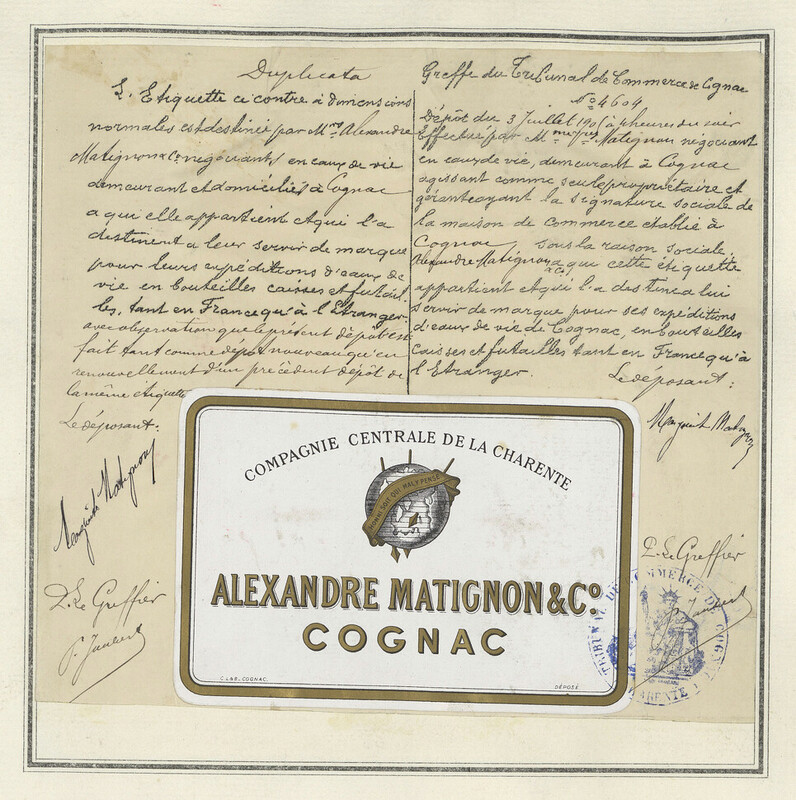 Duplicata
L'Etiquette ci contre à dimensions
normales est destinée par Mrs Alexandre
Matignon & Co négociants en eaux de vie
demeurant et domiciliés à Cognac
a qui elle appartient et qui l'a
destinent a leur servir de marque
pour leurs expéditions d'eaux de
vie en bouteilles caisses et futail-
les, tant en France qu'à l'Etranger
avec observation que le présent dépôt est
fait tant comme dépôt nouveau qu'en
renouvellement d'un précédent dépôt de
la même étiquette
Le déposant:
Matignon
P. Le Greffier
Greffe du Tribunal de Commerce de Cognac
No 4604
Dépôt du 3 Juillet 190 à heures du soir
Effectué par M Matignon négociant
en eaux de vie, demeurant à Cognac
agissant comme seule propriétaire et
gérante ayant la signature sociale de
la maison de commerce établie à
Cognac sous la raison sociale.
Alexandre Matignon & Co a qui cette étiquette
appartient et qui l'a destine a lui
servir de marque pour ses expéditions
d'eaux de vie de Cognac, en bouteilles
caisses et futailles tant en France qu'à
l'Etranger.
Le déposant:
Matignon
P. Le Greffier
COMPAGNIE CENTRALE DE LA CHARENTE
HONNI SOIT QUI MAL Y PENSE
ALEXANDRE MATIGNON & Co.
COGNAC
C L & B. COGNAC.
DÉPOSÉ
TRIBUNAL DE COMMERCE DE COGNAC
CHARENTE